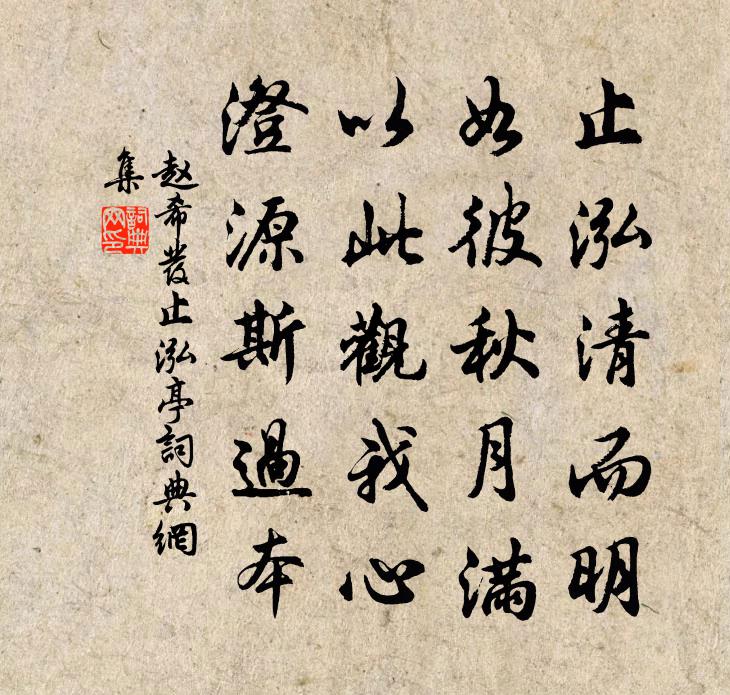 止泓清而明
如彼秋月满
以此觀我心
澄源斯過本
赵希發止泓亭詞典網
集
詞典
网印